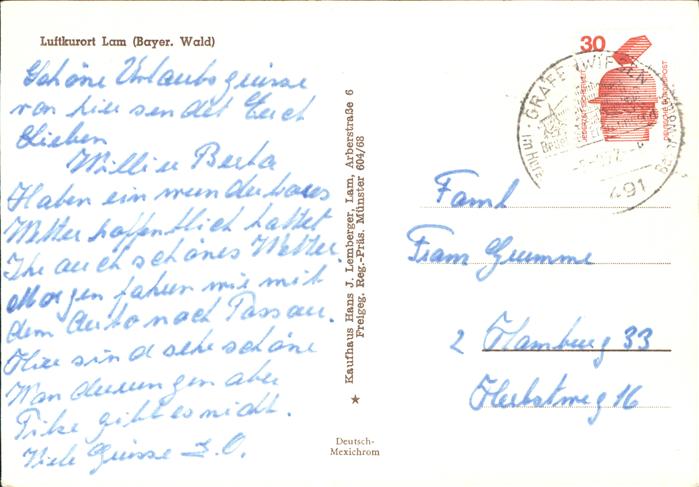 Luftkurort Lam (Bayer. Wald)
Schöne Urlaubsgrüsse
von hier sendet Euch
Lieben
Willi u Berta
Haben ein wunderbares
Wetter hoffentlich hattet
Ihr auch schönes Wetter.
Morgen fahren wir mit
dem Auto nach Passau.
Hier sind sehr schöne
Wanderungen aber
Pilze gibt es nicht.
Viele Grüsse
Kaufhaus Hans J. Lemberger, Lam, Arberstraße 6
Freigeg. Reg.-Präs. Münster 604/68
Deutsch-
Mexichrom
30
JEDERZEIT SICHERHEIT
DEUTSCHE BUNDESPOST
GRAFENWIESEN
491
Faml
Franz Grumme
2 Hamburg 33
Herbstweg 16